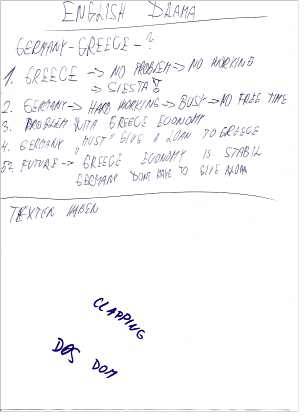 ENGLISH DRAMA
GERMANY - GREECE - ?
1. GREECE -> NO PROBLEM -> NO WORKING
-> SIESTA!
2. GERMANY -> HARD WORKING -> BUSY -> NO FREE TIME
3. PROBLEM WITH GREECE ECONOMY
4. GERMANY "MUST" GIVE A LOAN TO GREECE
5. FUTURE -> GREECE ECONOMY IS STABIL
GERMANY DONT HAVE TO GIVE
TEXTEN HABEN
CLAPPING
DOS DOM